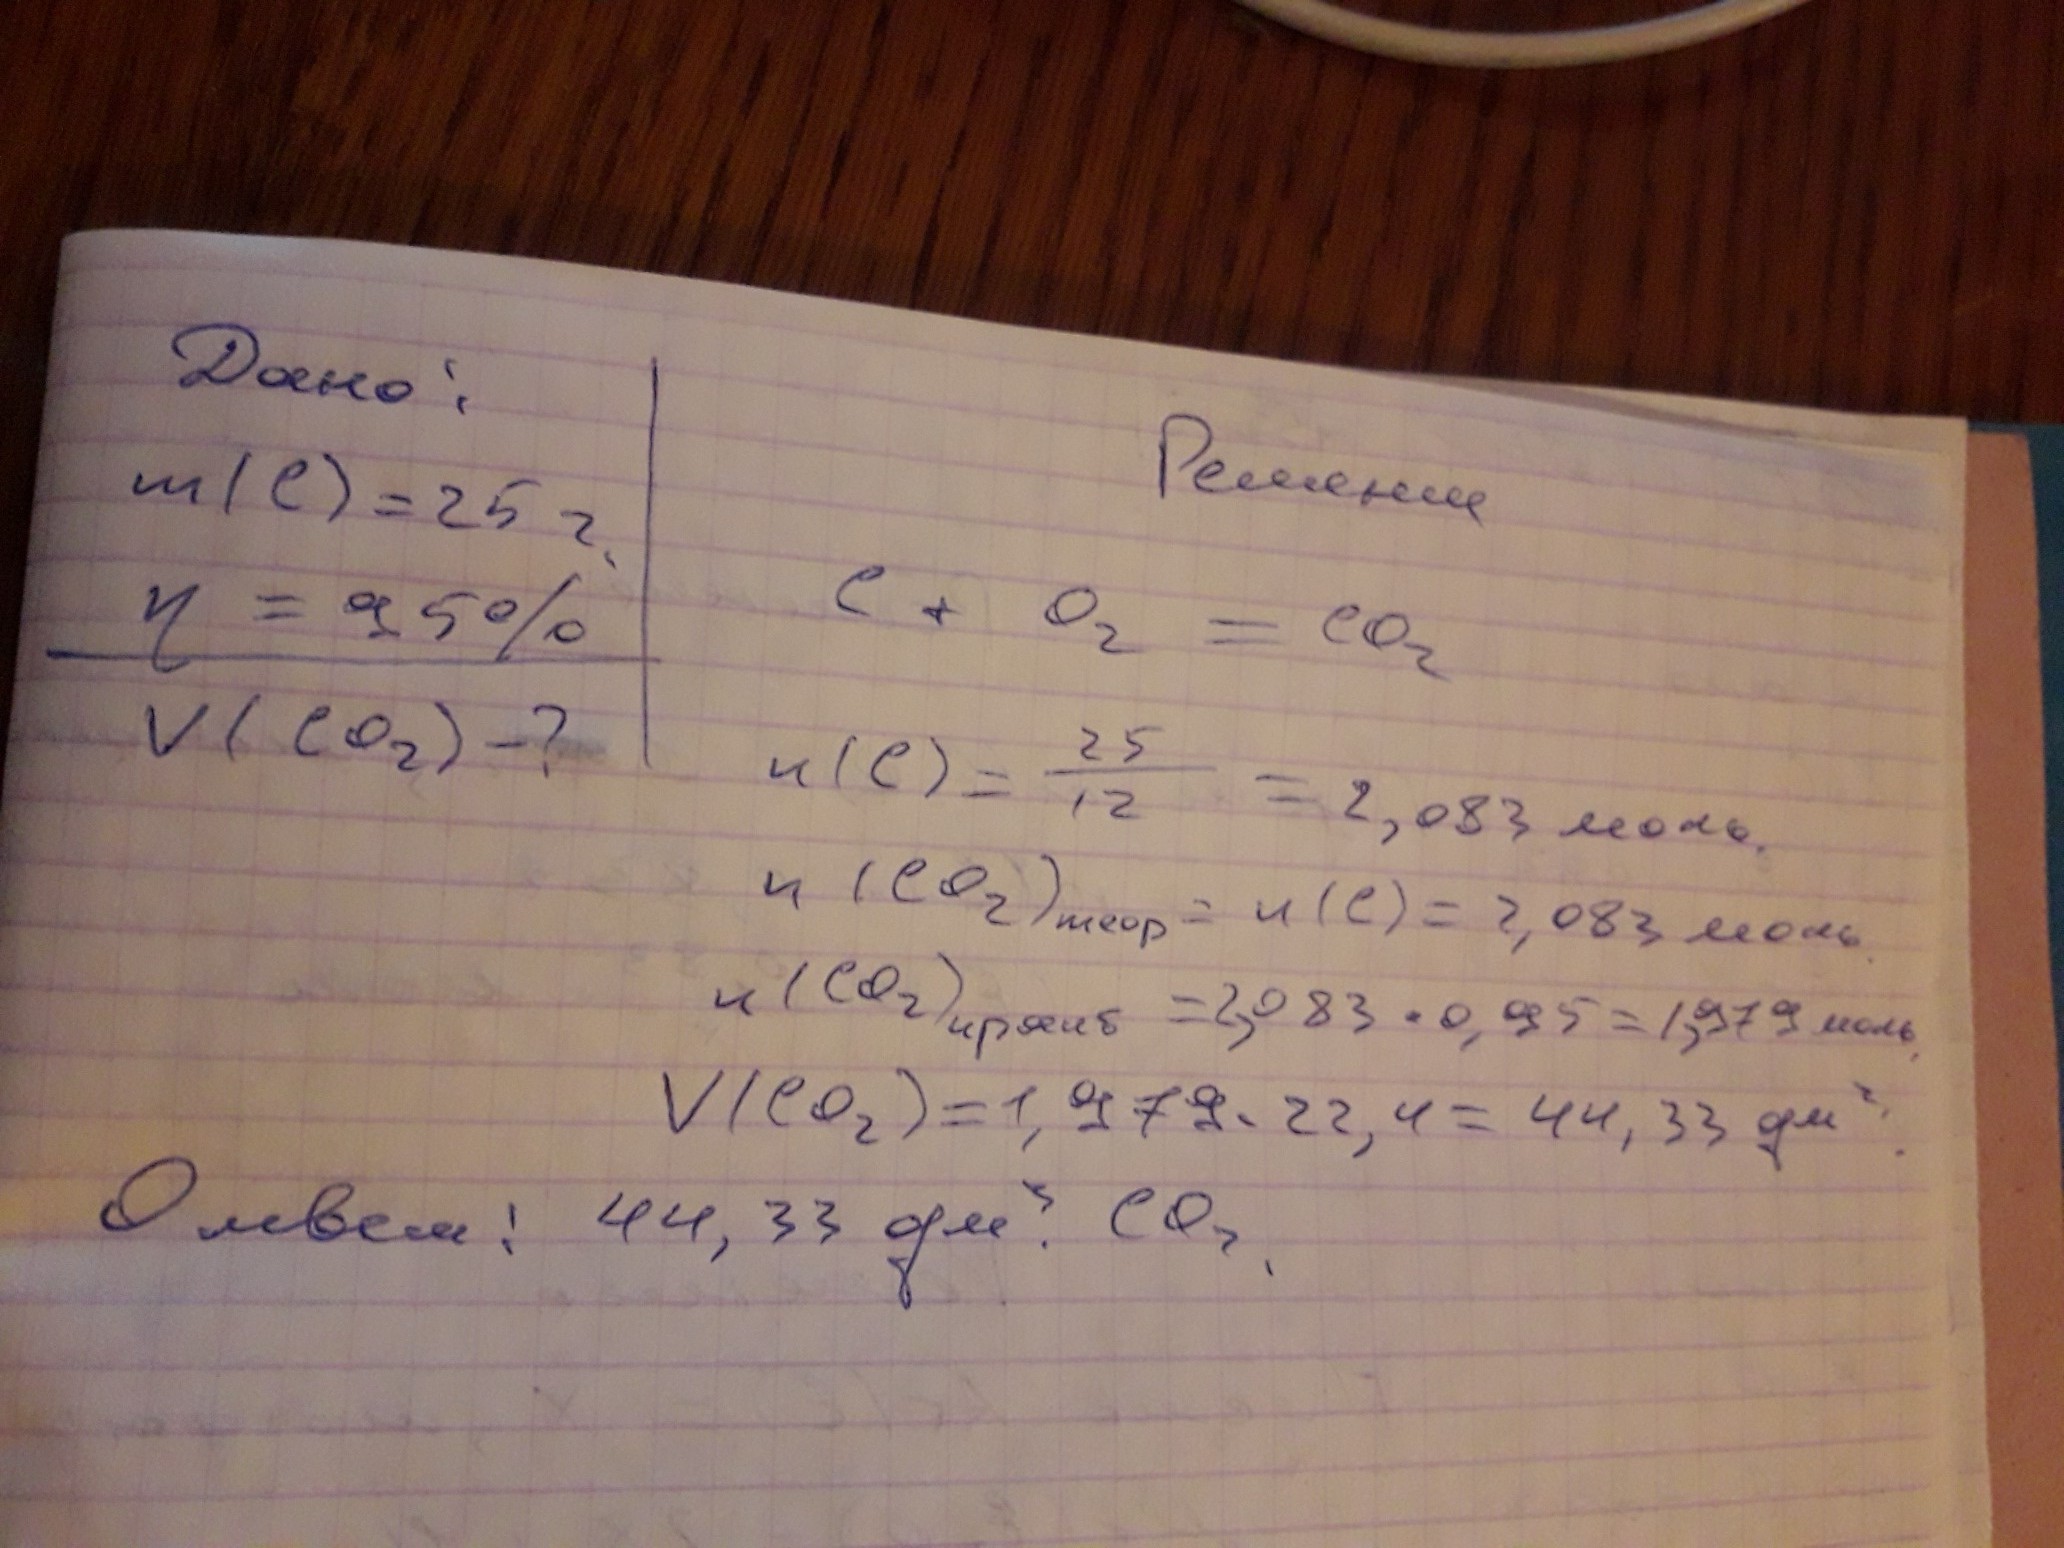 Дано:
m(C) = 25 г.
η = 95%
V(CO₂) - ?
Решение
C + O₂ = CO₂
n(C) = 25/12 = 2,083 моль.
n(CO₂)теор = n(C) = 2,083 моль.
n(CO₂)практ = 2,083 · 0,95 = 1,979 моль.
V(CO₂) = 1,979 · 22,4 = 44,33 дм³.
Ответ: 44,33 дм³. CO₂.